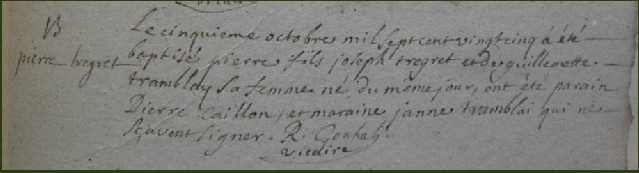 B
pierre tregret
Le cinquieme octobre mil sept cent vingt cinq à été
baptisé pierre fils joseph tregret et de guillemette
tramblay sa femme né du meme jour, ont été parain
Pierre Caillon, et maraine janne tramblai qui ne
sçavent signer. R.